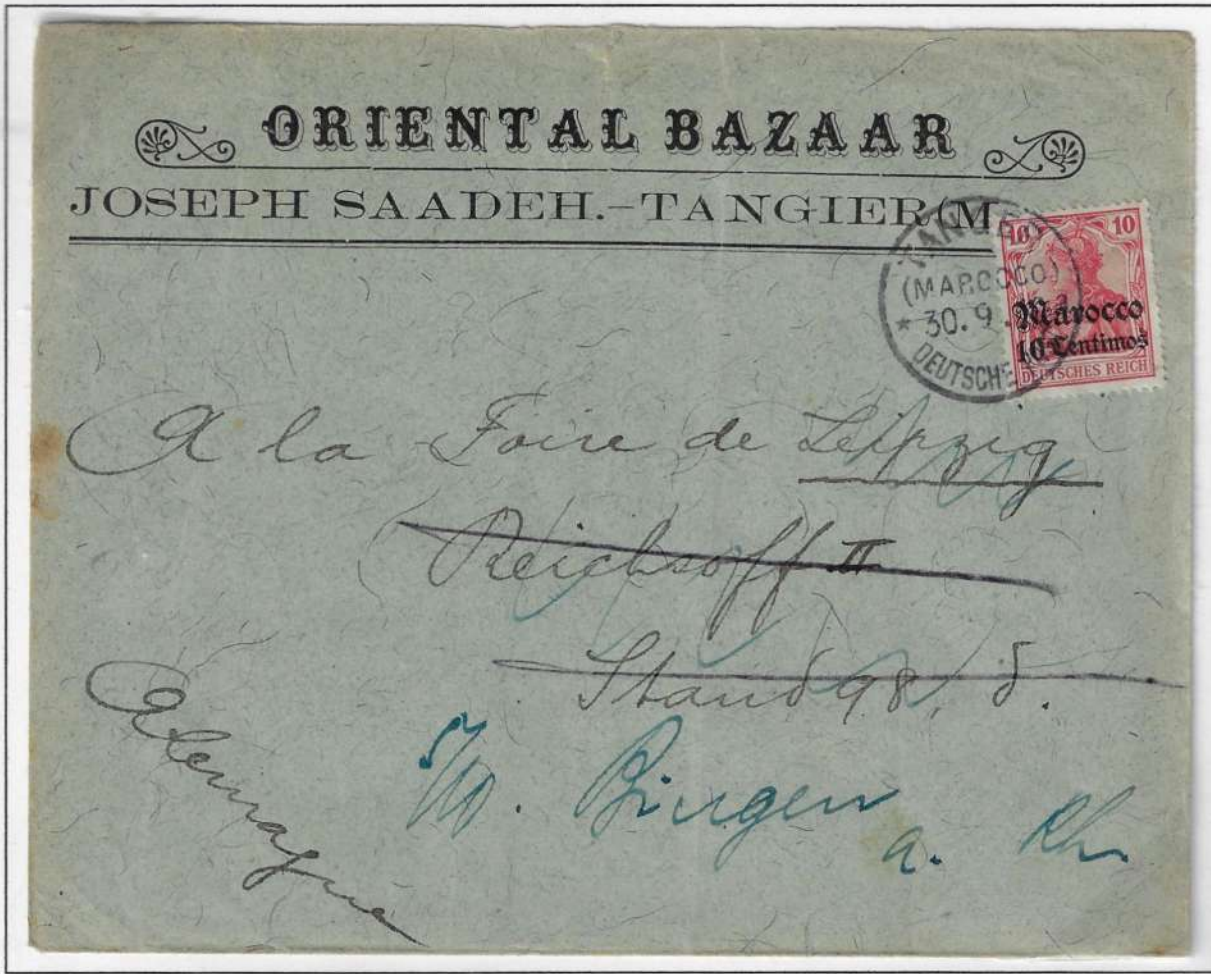 ORIENTAL BAZAAR
JOSEPH SAADEH.-TANGIER (M
TANGER
(MAROCCO)
* 30.9.
DEUTSCHE
10 10
Marocco
10 Centimos
DEUTSCHES REICH
A la Foire de Leipzig
Stand 98, d.
Alemagne
5/10. Bingen
a. Rh.